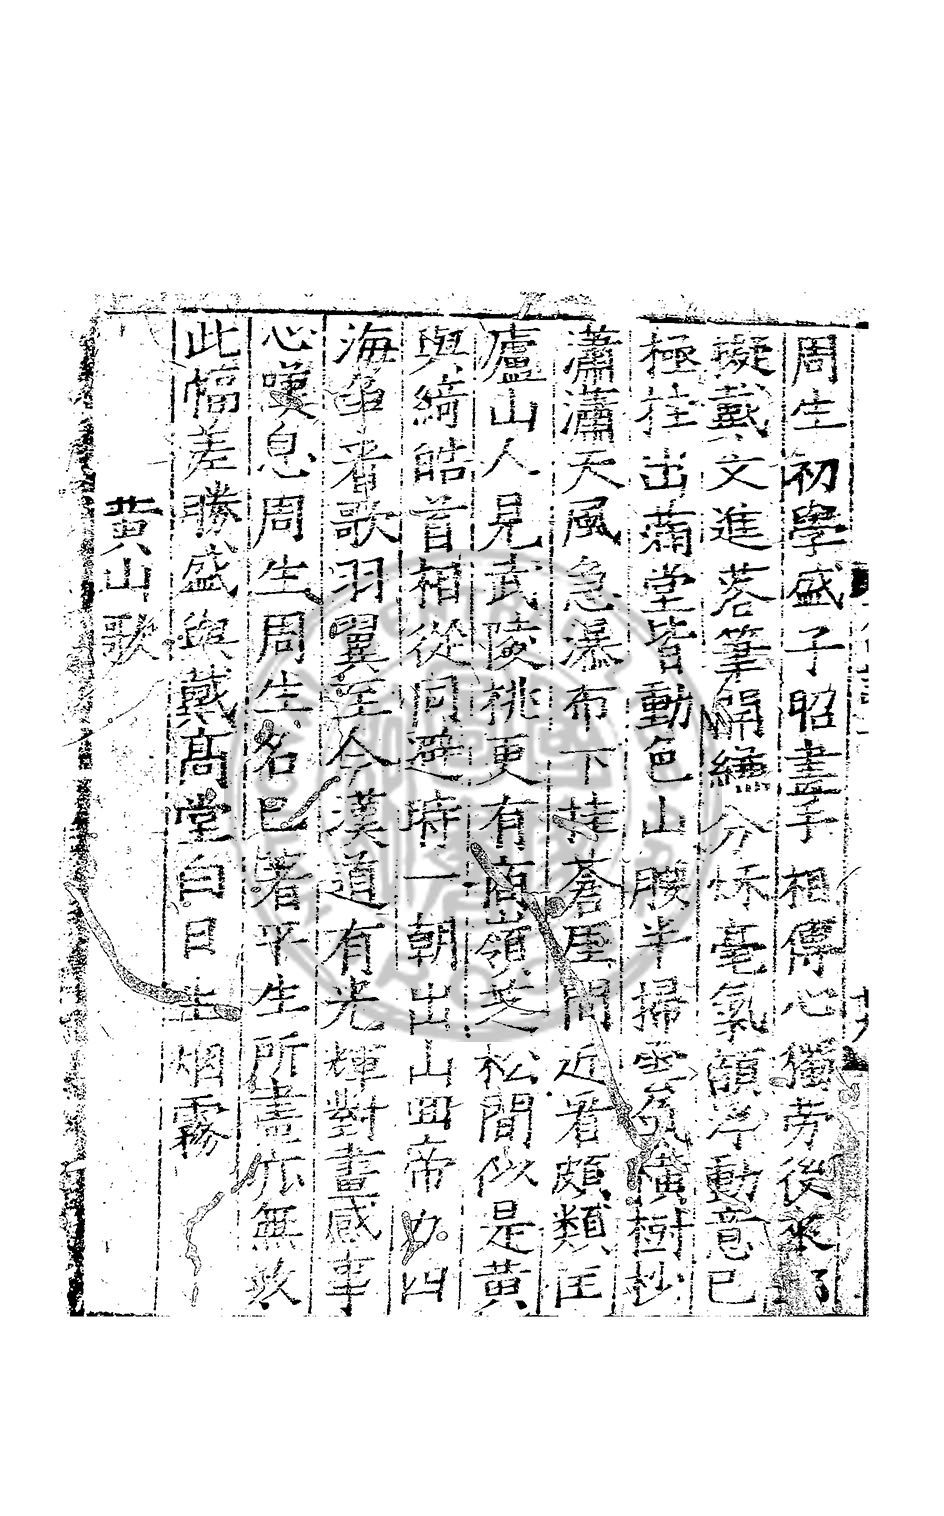 周生初學盛子昭畫手相傳心獨勞後來
擬戴文進落筆開縑分秋毫氣韻浮動意已
極拄出滿堂皆動色山腰半掃雲氣橫樹杪
瀟瀟天風急瀑布下挂蒼厓間近看頗類匡
廬山人見武陵桃更有商嶺芝松間似是黃
與綺皓首相從同避時一朝出山回帝力四
海爭看歌羽翼至今漢道有光輝對畫感事
心嘆息周生周生名已著平生所畫亦無數
此幅差勝盛與戴高堂白日生烟霧
黄山歌